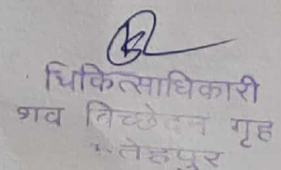 चिकित्साधिकारी
शव विच्छेदन गृह
फतेहपुर